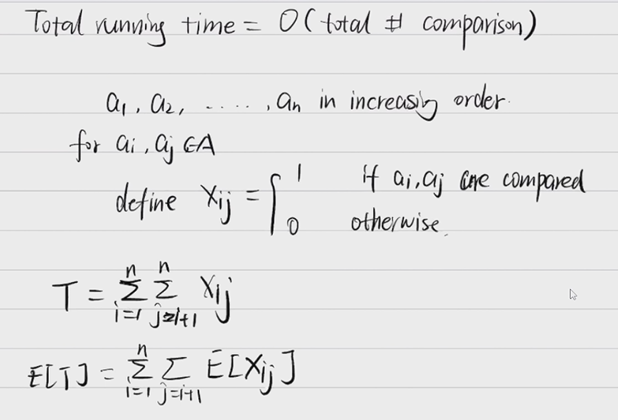 Total running time = O(total # comparison)
a₁, a₂, ....., aₙ in increasing order.
for aᵢ, aⱼ ∈ A
define Xᵢⱼ = { 1 if aᵢ, aⱼ are compared
0 otherwise.
T = Σᵢ₌₁ⁿ Σⱼ₌ᵢ₊₁ⁿ Xᵢⱼ
E[T] = Σᵢ₌₁ⁿ Σⱼ₌ᵢ₊₁ E[Xᵢⱼ]